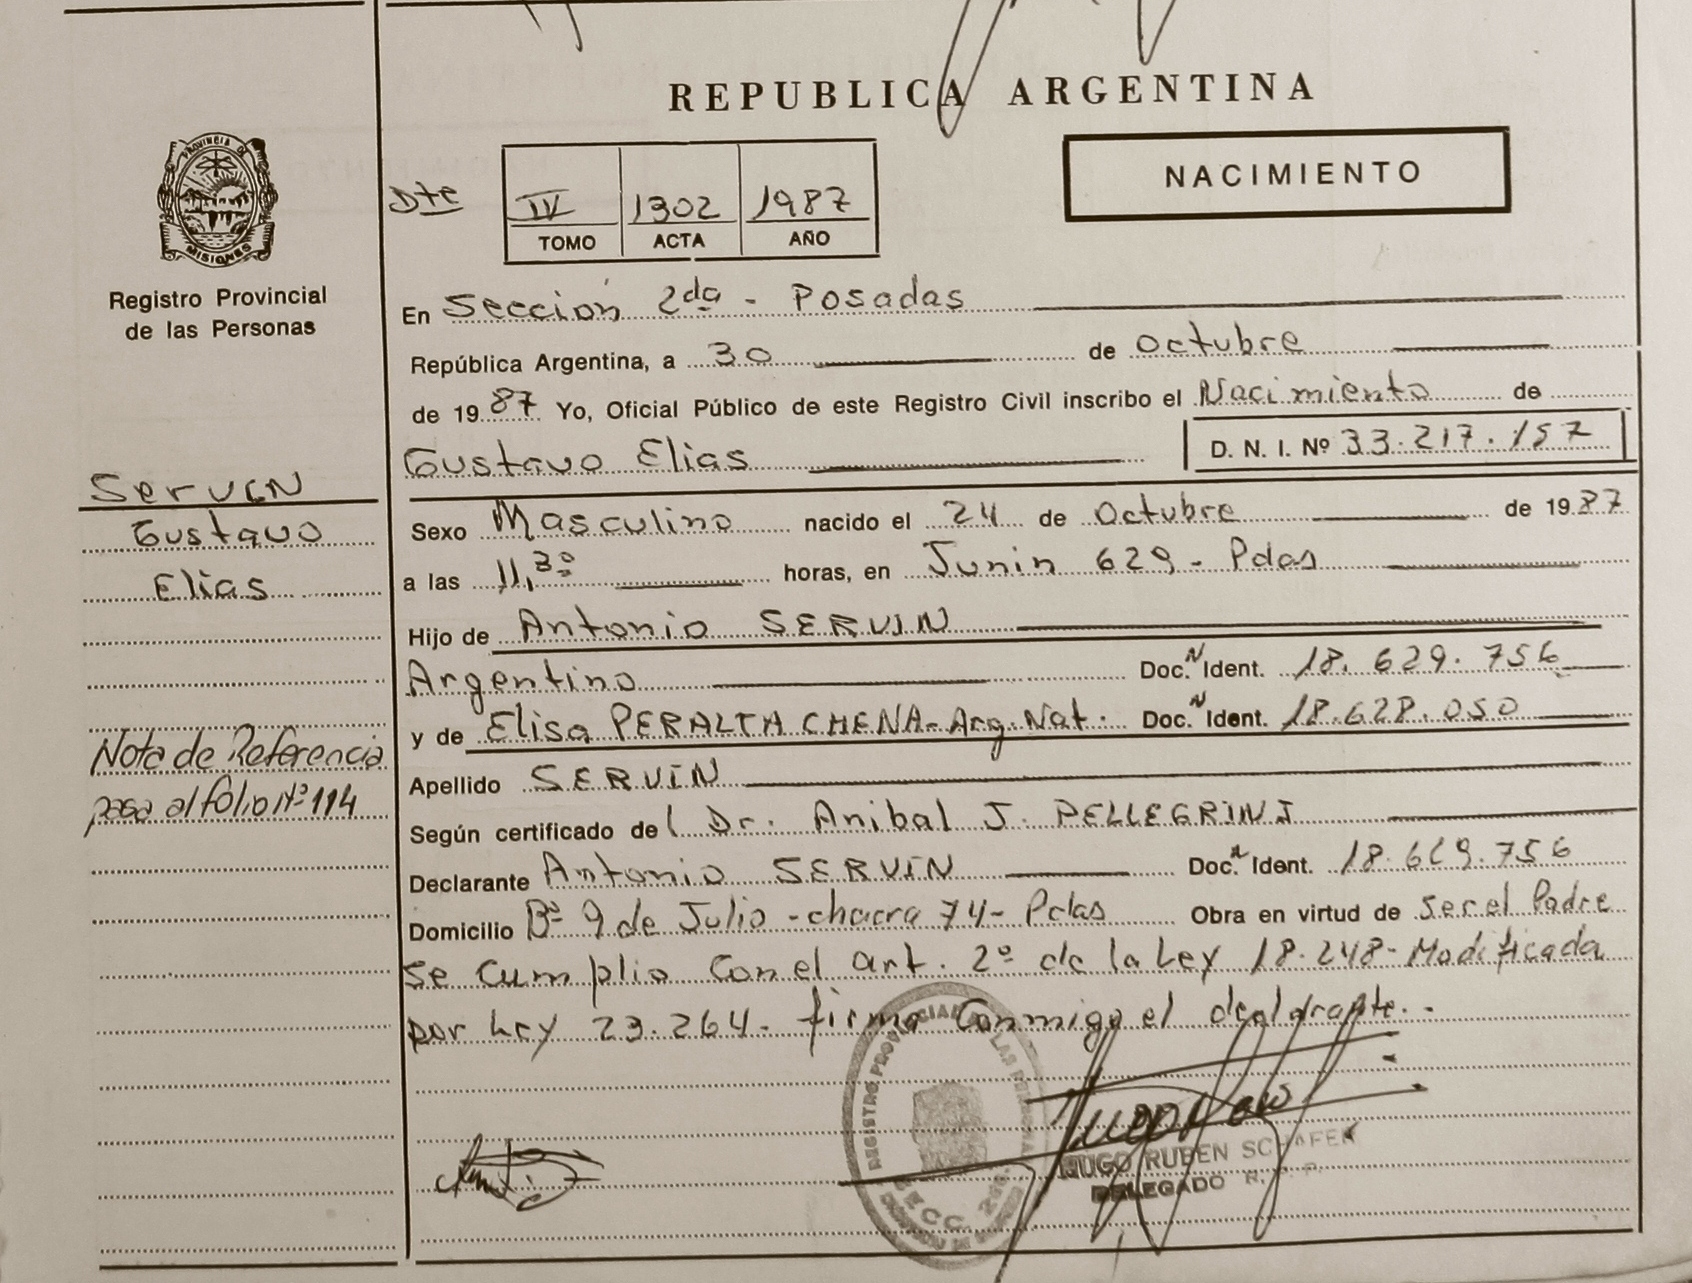 REPUBLICA ARGENTINA
NACIMIENTO
PROVINCIA DE
MISIONES
Registro Provincial
de las Personas
Dte
IV 1302 1987
TOMO ACTA AÑO
En Sección 2da - Posadas
República Argentina, a 30 de Octubre
de 1987 Yo, Oficial Público de este Registro Civil inscribo el Nacimiento de
Gustavo Elias D. N. I. Nº 33.217.157
SERVIN
Gustavo
Elias
Sexo Masculino nacido el 24 de Octubre de 1987
a las 11,30 horas, en Junin 629 - Pdas
Hijo de Antonio SERVIN
Argentino Doc. N Ident. 18.629.756
y de Elisa PERALTA CHENA - Arg. Nat. Doc. N Ident. 18.628.050
Nota de Referencia
pasa al folio Nº 114
Apellido SERVIN
Según certificado del Dr. Anibal J. PELLEGRINI
Declarante Antonio SERVIN Doc. Ident. 18.629.756
Domicilio Bº 9 de Julio - chacra 74 - Pdas Obra en virtud de Ser el Padre
se cumplio con el art. 2º de la Ley 18.248 - Modificada
por Ley 23.264 - firma Conmigo el declarante.-
REGISTRO PROVINCIAL DE LAS PERSONAS
SECC. 2da
HUGO RUBEN SCHAFER
DELEGADO R. P.